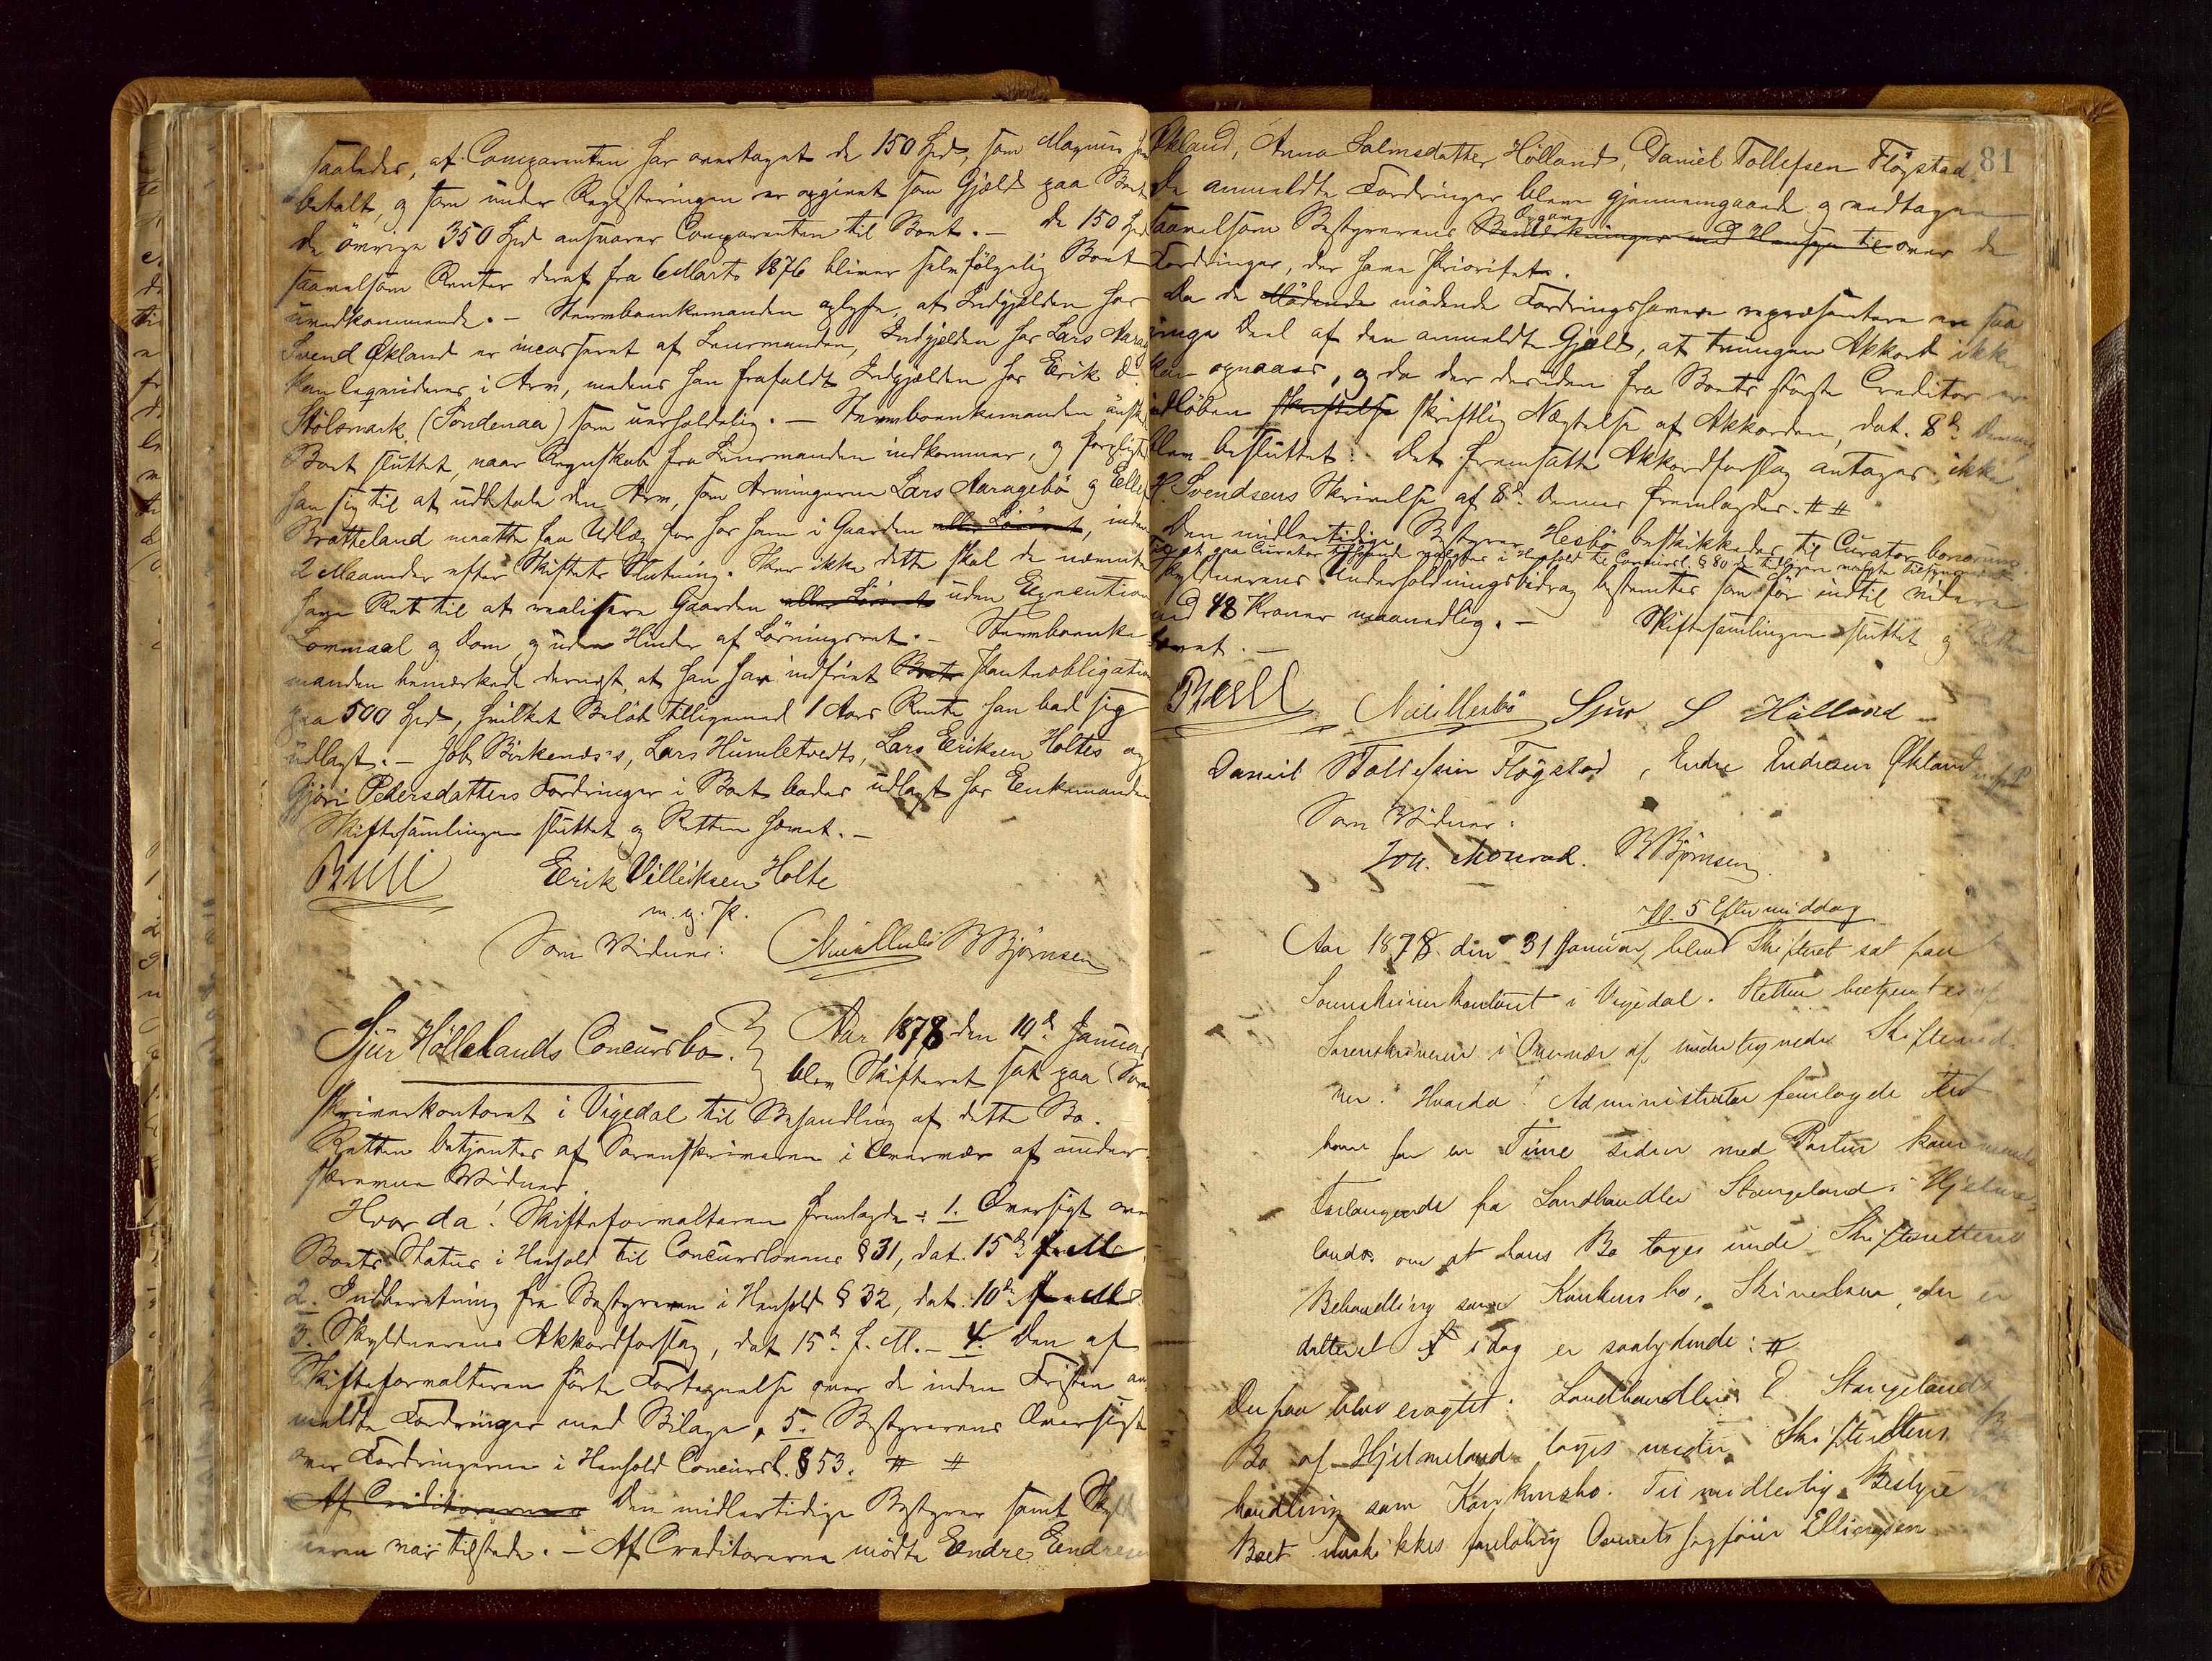 saaledes, at Comparenten har overtaget de 150 Spd, som Magnus har
betalt, og som under Registeringen er opgivet som Gjæld paa Boet
de övrige 350 Spd ansvarer Comparenten til Boet. – de 150 Spd
saavelsom Renter deraf fra 6 Marts 1876 bliver selvfölgelig Boet
uvedkommende. – Stervboenkemanden oplyste, at Indgjælden hos
Svend Økland er incasseret af Lensmanden, Indgjælden hos Lars
kan liqvideres i Arv, medens han frafaldt Indgjælden hos Erik
Stölsmark (Söndenaa) som uerholdelig. – Stervboenkemanden önsker
Boet sluttet, naar Regnskab fra Lensmanden indkommer, og forpligter
han sig til at udbetale den Arv, som Arvingerne Lars Aaragebö og
Bratteland maatte faa Udlæg for hos ham i Gaarden eller Lösöret, inden
2 Maaneder efter Skiftets Slutning. Sker ikke dette skal de nævnte
have Ret til at realisere Gaarden eller Lösöret uden Execution
Lovmaal og Dom og uden Hinder af Lösningsret. – Stervboenke
manden bemærkede dernæst, at han har indfriet Boets Panteobligation
paa 500 Spd, hvilket Belöb tilligemed 1 Aars Rente han bad sig
udlagt. – Job Birkenæs's, Lars Humletvedts, Lars Eriksen Holtes og
Gjöri Pedersdatters Fordringer i Boet bades udlagt hos Enkemanden
Skiftesamlingen sluttet og Retten hævet. –
Bull Erik Villeiksen Holte
m. p. P.
Som Vidner: BBjörnsen
Sjur Höllelands Concursbo. Aar 1878 den 10de Januar
blev Skifteret sat paa Soren
skriverkontoret i Vigedal til Behandling af dette Bo.
Retten betjentes af Sorenskriveren i Overvær af under
skrevne Vidner.
Hvorda! Skifteforvalteren fremlagde: 1. Oversigt over
Boets Status i Henhold til Concurslovens § 31, dat. 15de f. M.
2. Indberetning fra Bestyreren i Henhold § 32, dat. 10de f. M.
3. Skyldnerens Akkordforslag, dat 15de f. M. – 4. Den af
Skifteforvalteren förte Fortegnelse over de inden Fristen an-
meldte Fordringer med Bilage, 5. Bestyrerens Oversigt
over Fordringerne i Henhold Concursl. § 53. # #
Af Creditorerne Den midlertidige Bestyrer samt Skyld
neren var tilstede. – Af Creditorerne mödte Endre Endresen
81
Økland, Anna Salmsdatter Hölland, Daniel Tollefsen Flögstad.
De anmeldte Fordringer blev gjennemgaaede og vedtagne
saavelsom Bestyrerens Opgave Bemærkninger med Hensyn til over de
Fordringer, der have Prioritet.
Da de Mödende mödende Fordringshavere repræsentere en saa
ringe Deel af den anmeldte Gjæld, at tvungen Akkord ikke
kan opnaaes, og da der desuden fra Boets störste Creditor er
indlöben skriftelse skriftlig Nægtelse af Akkorden, dat. 8de Dennes,
blev besluttet: Det fremsatte Akkordforslag antages ikke.
Svendsens Skrivelse af 8de Dennes fremlagdes. # #
Den midlertidige Bestyrer Hesbö beskikkedes til Curator bonorum.
Skyldnerens Underholdningsbidrag bestemtes som för indtil videre
med 48 Kroner maanedlig. – Skiftesamlingen sluttet og Retten
hævet. –
Bull Sjur S Hölland
Daniel Tollefsen Flögstad, Endre Endresen Økland
Som Vidner:
Joh. Monrad. BBjörnsen
Kl. 5 Eftermiddag
Aar 1878 den 31 Januar, blev Skifteret sat paa
Sorenskriverkontoret i Vigedal. Retten betjentes af
Sorenskriveren i Overvær af undertegnede Skiftevid-
ner. Hvorda! Administrator fremlagde den
ham for en Time siden med Posten kommende
Forlangende fra Landhandler Stangeland i Hjelme-
land om at hans Bo tages under Skifterettens
Behandling som Konkursbo. Skrivelsen, der er
datteret i dag er saalydende: #
Derpaa blev eragtet. Landhandler Stangelands
Bo af Hjelmeland tages under Skifterettens Be
handling som Konkursbo. Til midlertidig Bestyrer
Boet beskikkes foreløbig Overretssagfører Ellingsen